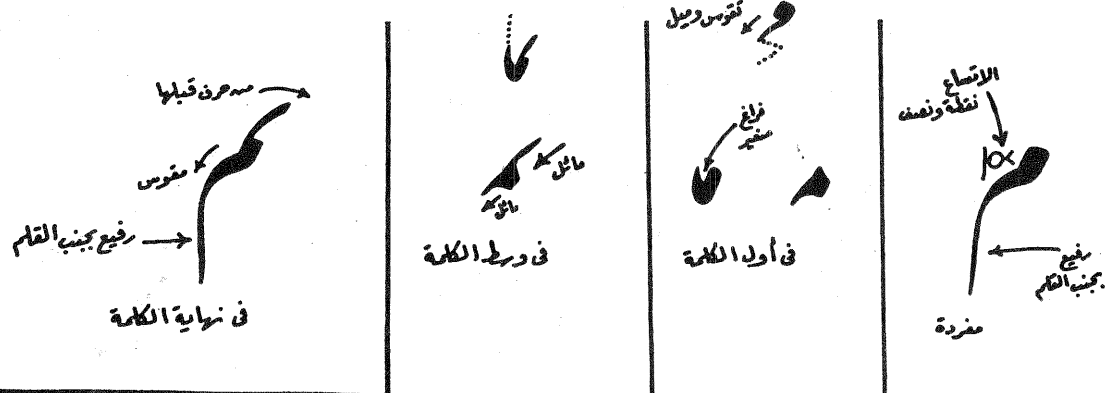 الاتساع
نقطة ونصف
رفيع
بجنب القلم
مفردة
تقوس وميل
فراغ
صغير
فى أول الكلمة
مائل
مائل
فى وسط الكلمة
من حرف قبلها
مقوس
رفيع بجنب القلم
فى نهاية الكلمة